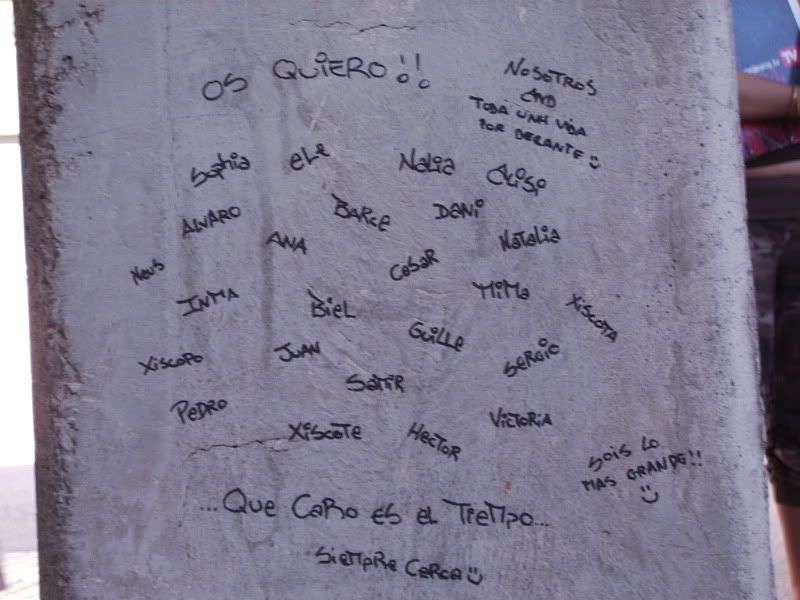 OS QUiERO!!
NOSOTROS
AND
TODA UNA ViDA
POR DERANTE
Sophia eLe NaLia
ALiSi
ALVARO BARCE DaNi
ANA NaTaLia
Neus CeSaR
INMA BieL MiMa XiSCOTA
XiSCOPO JUAN GuiLLe SeRGio
SaTiR
PeDRO XiSCOTE HeCTOR ViCTORiA
SOiS LO
MAS GRANDE!!
...Que CaRO eS eL TieMPO...
SieMPRe CeRCa
TV